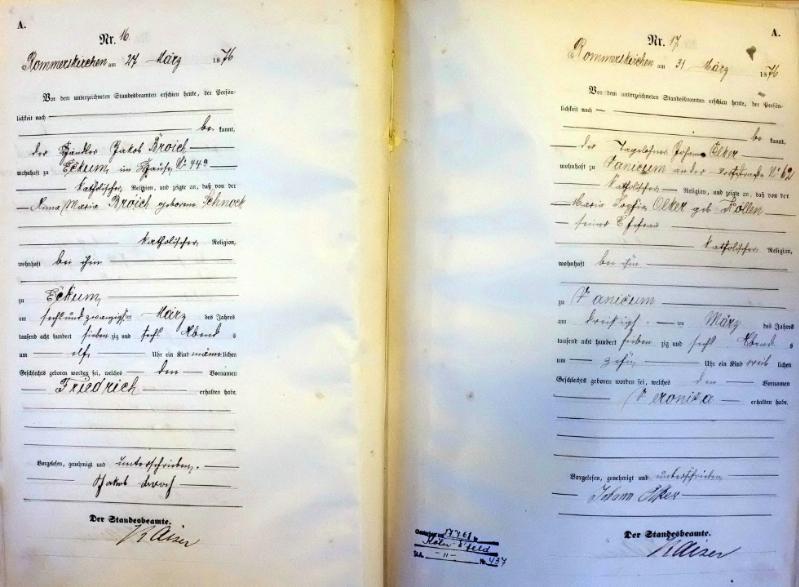 A.
Nr. 16
Rommerskirchen am 27 März 1876
Vor dem unterzeichneten Standesbeamten erschien heute, der Persön-
lichkeit nach
be kannt,
der Händler Jakob Broich
wohnhaft zu Eckum, in Hause No 44a
katholischer Religion, und zeigte an, daß von der
Anna Maria Broich geborene Schnock
katholischer Religion,
wohnhaft bei ihm
zu Eckum,
am sechsundzwanzigsten März des Jahres
tausend acht hundert sieben zig und sechs Abend s
um elf Uhr ein Kind männlichen
Geschlechts geboren worden sei, welches den Vornamen
Friedrich erhalten habe.
Vorgelesen, genehmigt und unterschrieben.
Jakob Broich
Der Standesbeamte.
Kaiser
A.
Nr. 17
Rommerskirchen am 31 März 1876
Vor dem unterzeichneten Standesbeamten erschien heute, der Persön-
lichkeit nach
be kannt,
der Tagelöhner Johann Olker
wohnhaft zu Vanicum an der No 62
katholischer Religion, und zeigte an, daß von der
Maria Sophia Olker geb Follen
seiner Ehefrau
katholischer Religion,
wohnhaft bei ihm
zu Vanicum
am dreißigsten März des Jahres
tausend acht hundert sieben zig und sechs Abend s
um zehn Uhr ein Kind weib lichen
Geschlechts geboren worden sei, welches den Vornamen
Veronika erhalten habe.
Vorgelesen, genehmigt und unterschrieben
Johann Olker
Der Standesbeamte.
Kaiser
Nr. 437